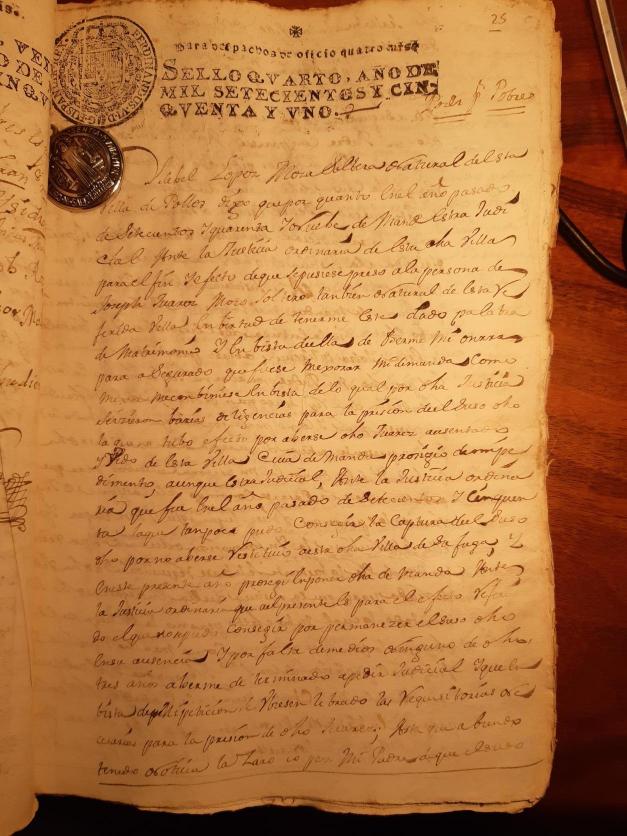 25
Para despachos de oficio quatro mrs.
SELLO QVARTO, AÑO DE
MIL SETECIENTOS Y CIN
QVENTA Y VNO.
Poder pr Pobre
Isabel Lopez Moza soltera Natural de esta
Villa de digo que por quanto en el año pasado
de Setecientos y quarenta y Nuebe de Manda Extra Judi
cial Ante la Justicia ordinaria de esta dha Villa
para el fin y efecto de que se pusiese preso a la persona de
Joseph Juarez Mozo soltero tambien Natural de esta Re
ferida Villa en bertud de tenerme este dado palabra
de Matrimonio y en bista de ella de Mi onrra
para asegurado que fuese mejorar mi demanda como
me combiniese en bista de lo qual por dha Justicia
se izieron barias diligencias para la prision de el suso dho
la que no tubo efecto por aberse dho Juarez ausentado
de esta Villa Cuia de Manda
dimento, aunque extra Judicial, Ante la Justicia ordina
ria que fue en el año pasado de Setecientos y Cinquen
ta la que tampoco pudo Consegir la Captura de el suso
dho por no aberse Restituido a esta dha Villa de su fuga, y
en este presente año prosegi en poner dha de Manda Ante
la Justicia ordinaria que al presente es para el efecto Referi
do el que no e podido Consegir por permanezer el suso dho
en su ausencia y por falta de medios ninguno de dhos
tres años aberme de terminado a pedir Judicial y que en
bista de Mi peticion se ubiesen librado las Requisitorias
para la prision de dho Juarez, Asta que abiendo
tenido Noticia por Mi Padre